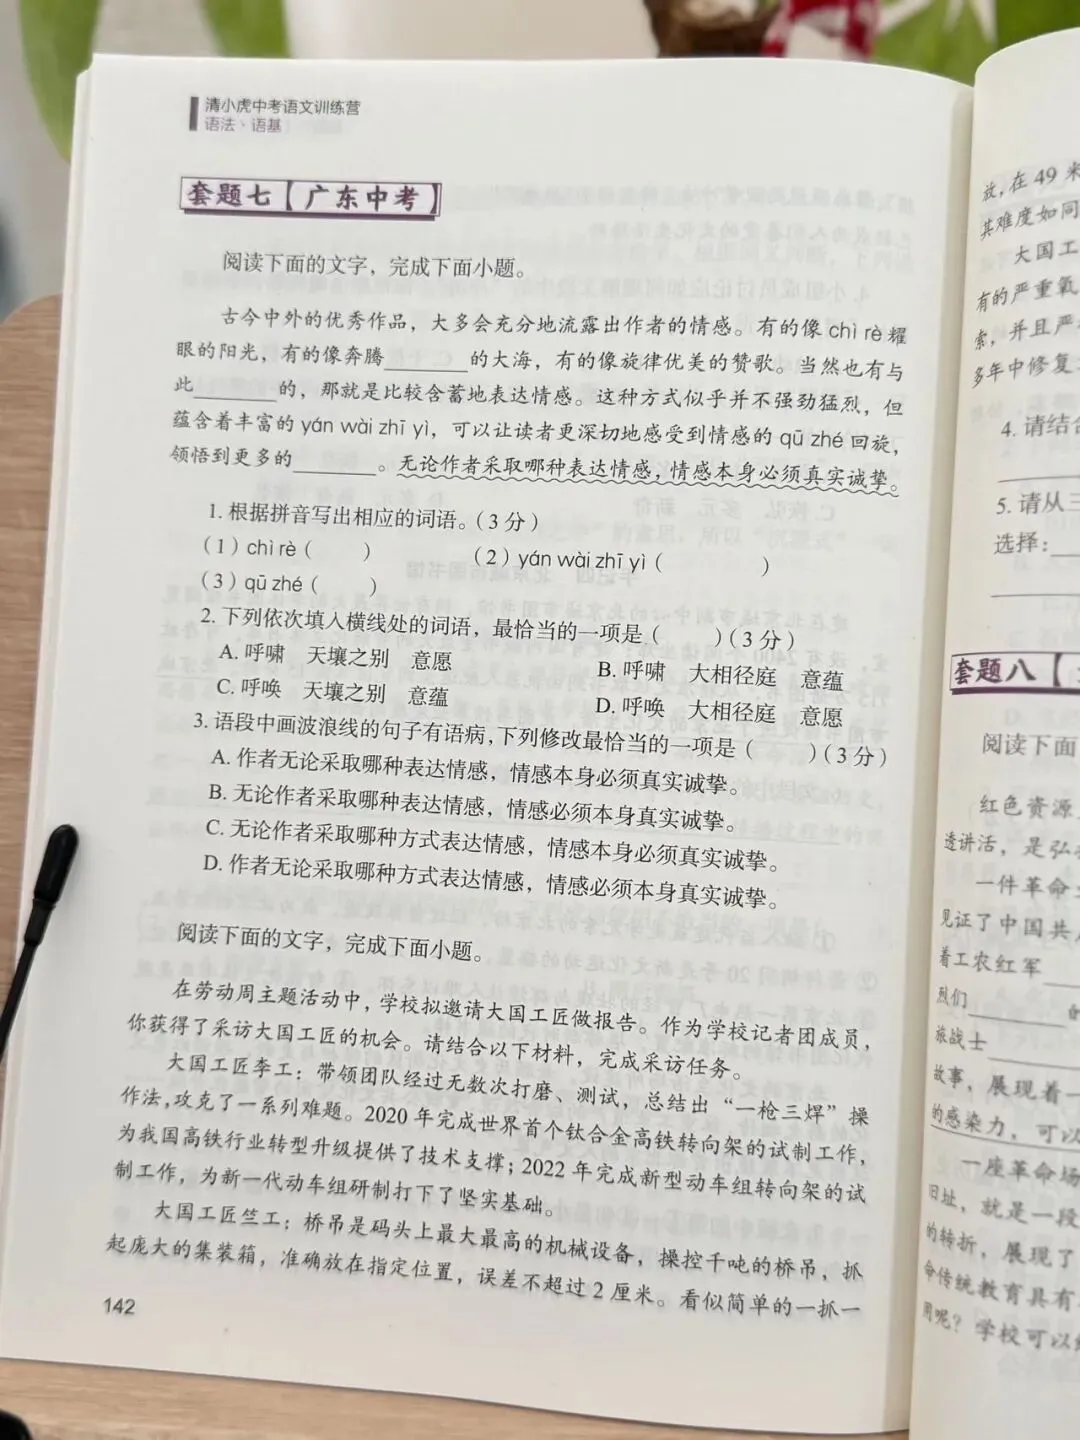 清小虎中考语文训练营
语法、语基
套题七【广东中考】
阅读下面的文字，完成下面小题。
古今中外的优秀作品，大多会充分地流露出作者的情感。有的像 chì rè 耀
眼的阳光，有的像奔腾________的大海，有的像旋律优美的赞歌。当然也有与
此________的，那就是比较含蓄地表达情感。这种方式似乎并不强劲猛烈，但
蕴含着丰富的 yán wài zhī yì，可以让读者更深切地感受到情感的 qū zhé 回旋，
领悟到更多的________。无论作者采取哪种表达情感，情感本身必须真实诚挚。
1. 根据拼音写出相应的词语。（3 分）
（1）chì rè（ ） （2）yán wài zhī yì（ ）
（3）qū zhé（ ）
2. 下列依次填入横线处的词语，最恰当的一项是（ ）（3 分）
A. 呼啸 天壤之别 意愿 B. 呼啸 大相径庭 意蕴
C. 呼唤 天壤之别 意蕴 D. 呼唤 大相径庭 意愿
3. 语段中画波浪线的句子有语病，下列修改最恰当的一项是（ ）（3 分）
A. 作者无论采取哪种表达情感，情感本身必须真实诚挚。
B. 无论作者采取哪种表达情感，情感必须本身真实诚挚。
C. 无论作者采取哪种方式表达情感，情感本身必须真实诚挚。
D. 作者无论采取哪种方式表达情感，情感必须本身真实诚挚。
阅读下面的文字，完成下面小题。
在劳动周主题活动中，学校拟邀请大国工匠做报告。作为学校记者团成员，
你获得了采访大国工匠的机会。请结合以下材料，完成采访任务。
大国工匠李工：带领团队经过无数次打磨、测试，总结出“一枪三焊”操
作法，攻克了一系列难题。2020 年完成世界首个钛合金高铁转向架的试制工作，
为我国高铁行业转型升级提供了技术支撑；2022 年完成新型动车组转向架的试
制工作，为新一代动车组研制打下了坚实基础。
大国工匠竺工：桥吊是码头上最大最高的机械设备，操控千吨的桥吊，抓
起庞大的集装箱，准确放在指定位置，误差不超过 2 厘米。看似简单的一抓一
142
放，在 49 米
其难度如同
大国工
有的严重氧
索，并且严
多年中修复
4. 请结合
5. 请从三
选择：
套题八【
阅读下面
红色资源
透讲活，是弘
一件革命
见证了中国共
着工农红军
烈们
旅战士
故事，展现着一
的感染力，可以
一座革命场
旧址，就是一段
的转折，展现了
命传统教育具有
用呢？学校可以